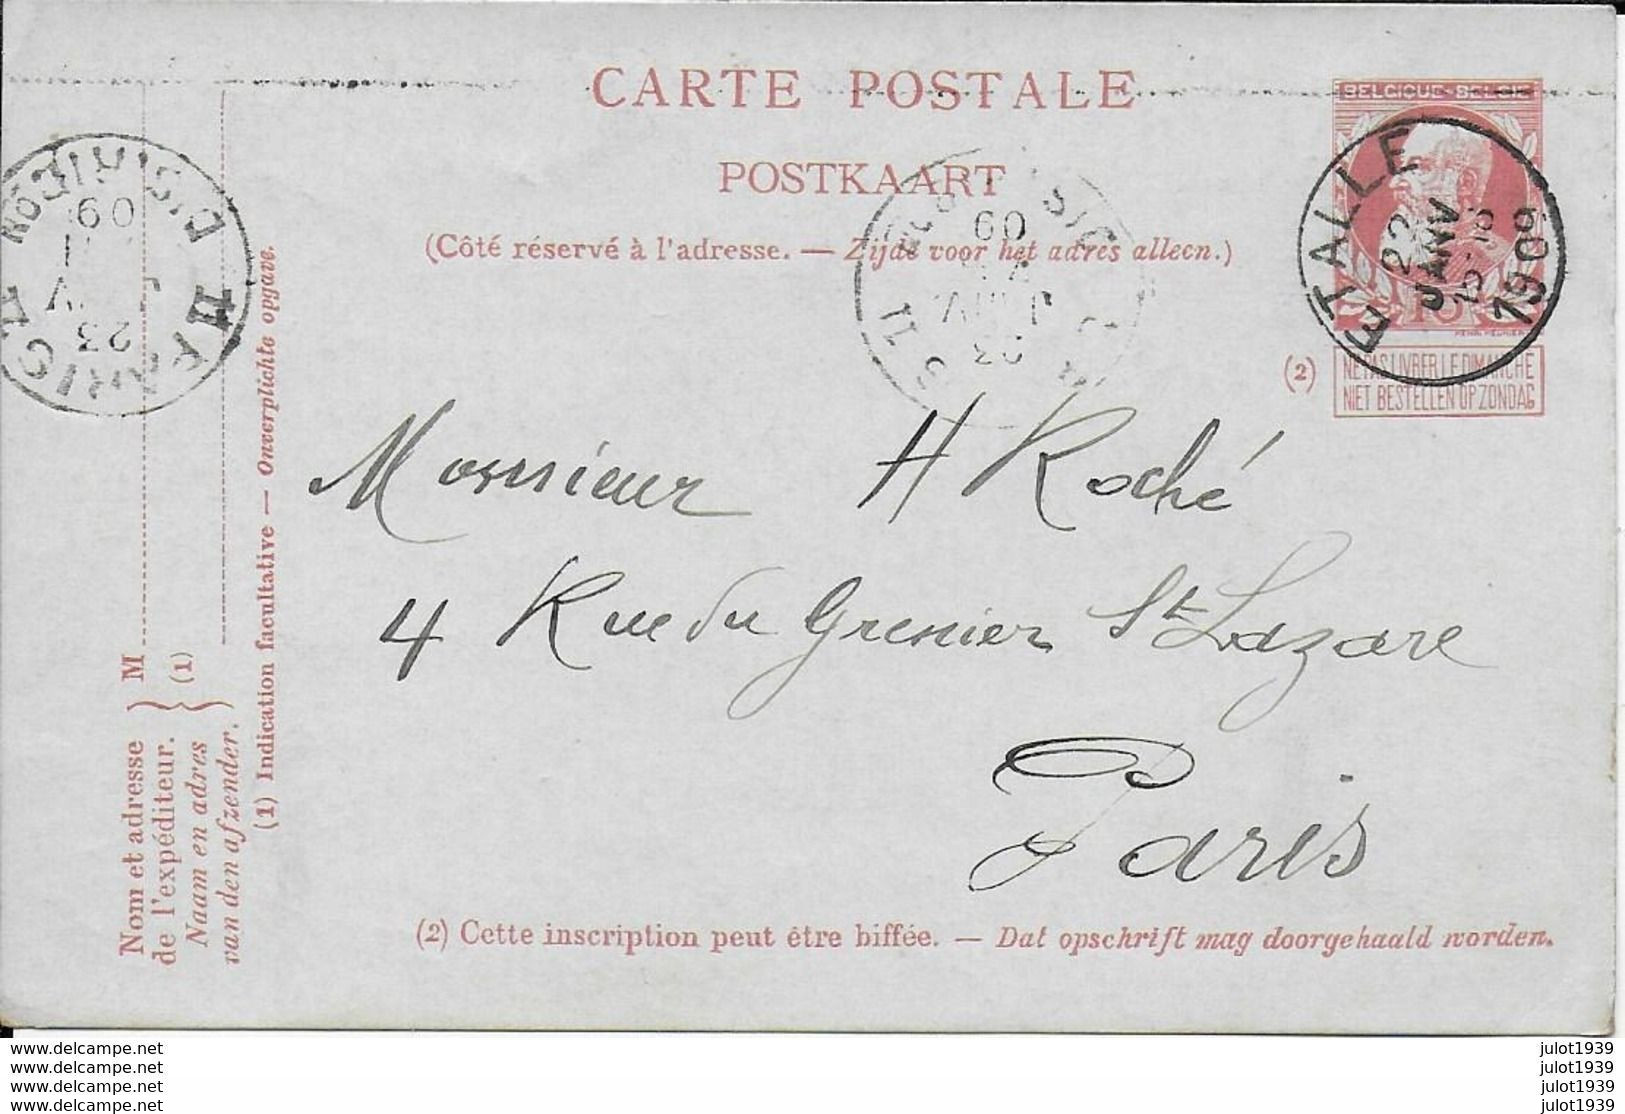 CARTE POSTALE
BELGIQUE-BELGIE
POSTKAART
(Côté réservé à l'adresse. — Zijde voor het adres alleen.)
ETALLE
22
JANV
1909
10
(2)
NE PAS LIVRER LE DIMANCHE
NIET BESTELLEN OP ZONDAG
PARIS
DISTRIBUTION
23
09
23
09
Monsieur H Roché
4 Rue du Grenier St Lazare
Paris
M
(1)
Nom et adresse
de l'expéditeur.
Naam en adres
van den afzender.
(1) Indication facultative — Onverplichte opgave.
(2) Cette inscription peut être biffée. — Dat opschrift mag doorgehaald worden.
www.delcampe.net
www.delcampe.net
www.delcampe.net
www.delcampe.net
julot1939
julot1939
julot1939
julot1939